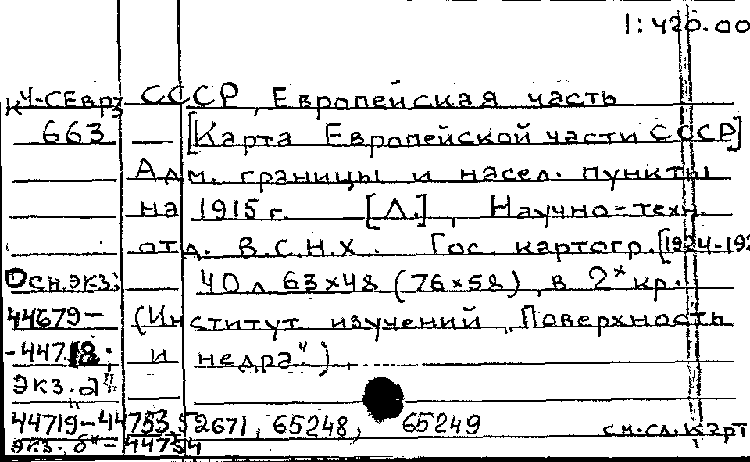 1:420.00
К4-СЕвр3 СССР, Европейская часть
663 [Карта Европейской части СССР]
Адм. границы и насел. пункты
на 1915 г. [Л.], Научно-техн.
отд. В.С.Н.Х. Гос. картогр. [1924-192
Осн.экз: 40 л 63х48 (76х58), в 2х кр.
44679- (Институт изучений „Поверхность
-44718; и недра").
Экз. а
44719-44753, 52671, 65248, 65249
экз. б - 44754 см.сл.карт